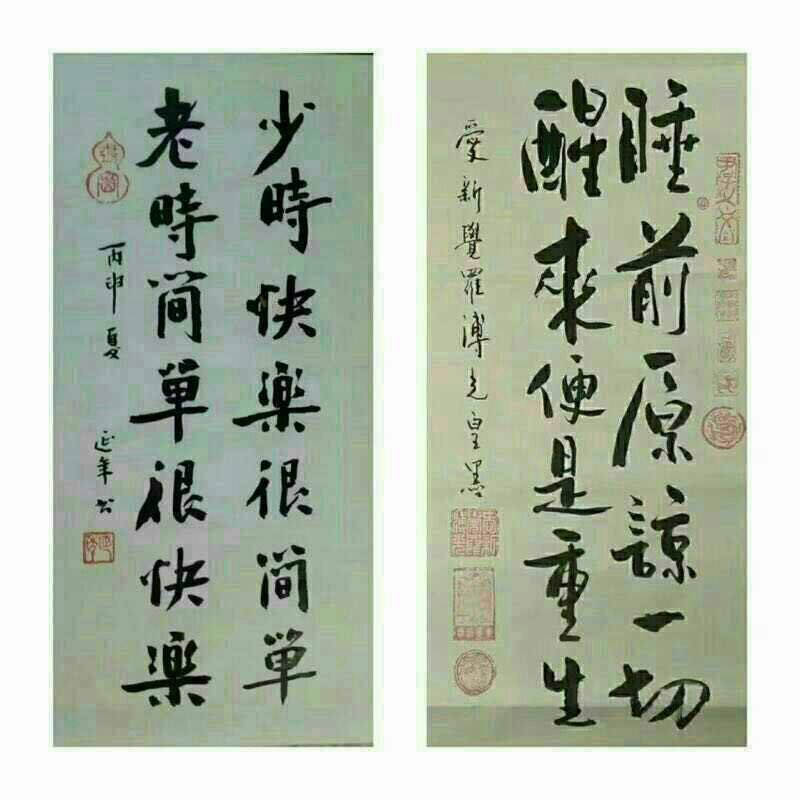 少時快樂很簡單
老時簡單很快樂
丙申夏
延年书
睡前原諒一切
醒來便是重生
愛新覺羅溥